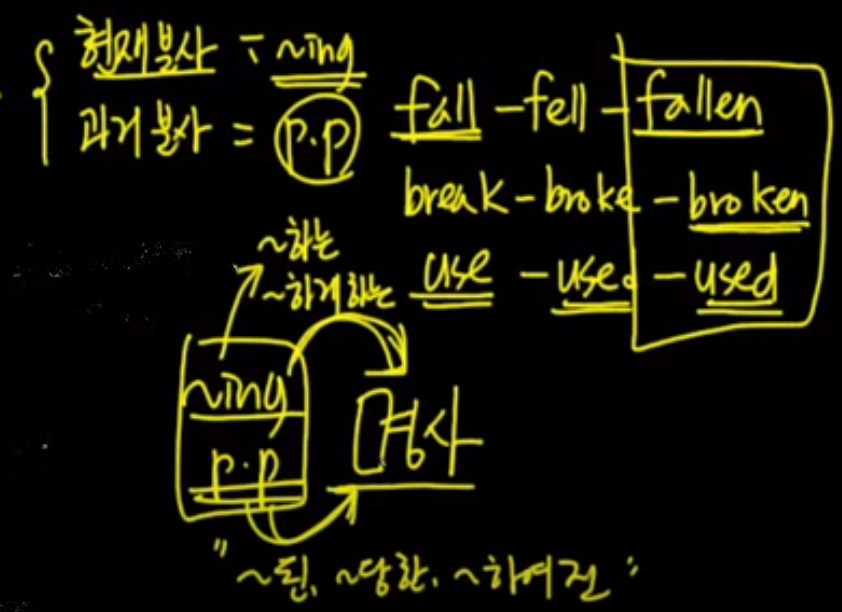 현재분사 = ~ing
과거분사 = p.p
fall - fell - fallen
break - broke - broken
use - used - used
~하는
~하게하는
~ing
p.p
명사
"~된, ~당한, ~하여진"